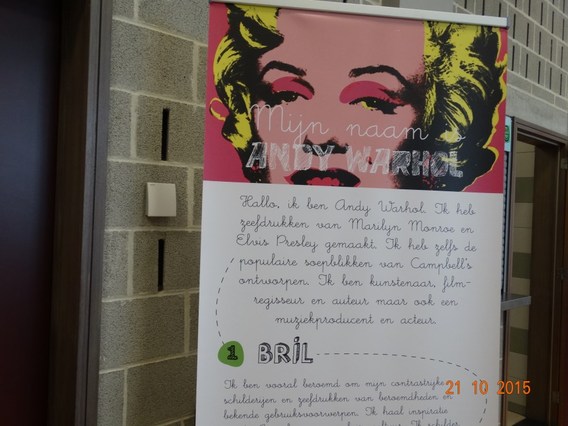 Mijn naam
ANDY WARHOL
Hallo, ik ben Andy Warhol. Ik heb
zeefdrukken van Marilyn Monroe en
Elvis Presley gemaakt. Ik heb zelfs de
populaire soepblikken van Campbell's
ontworpen. Ik ben kunstenaar, film-
regisseur en auteur maar ook een
muziekproducent en acteur.
1 BRIL
Ik ben vooral beroemd om mijn contrastrijke
schilderijen en zeefdrukken van beroemdheden en
bekende gebruiksvoorwerpen. Ik haal inspiratie
21 10 2015